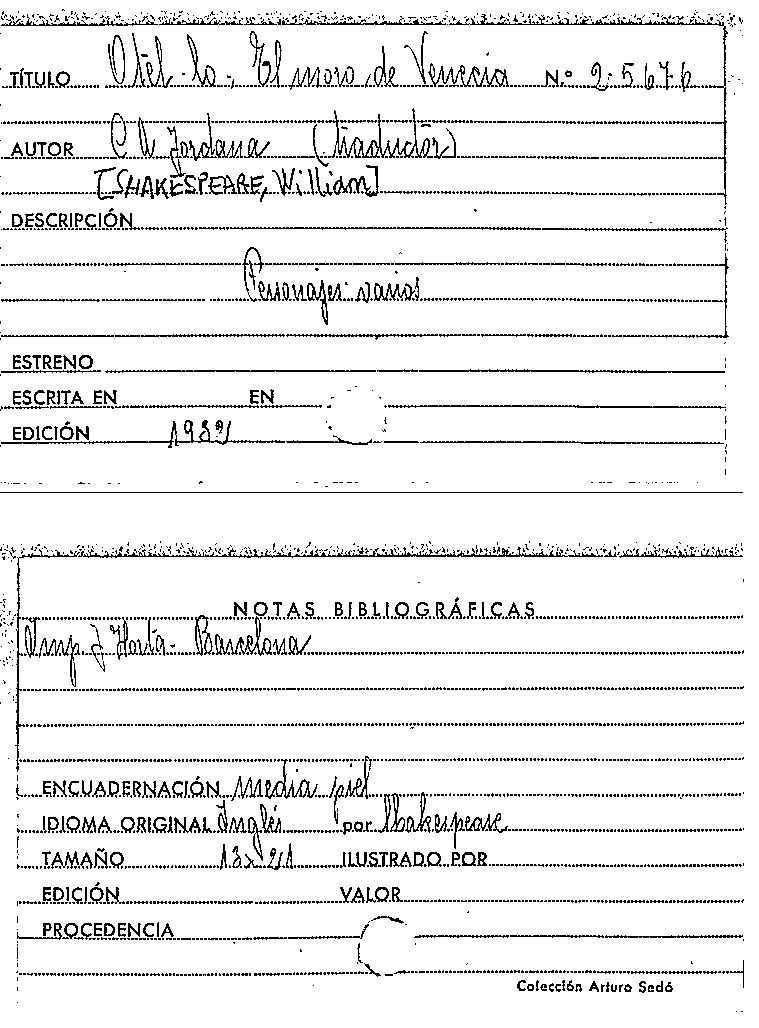 TÍTULO Otel·lo, El moro de Venecia N.º 2.5676
AUTOR C A Jordana (traductor)
[SHAKESPEARE, William]
DESCRIPCIÓN
Personajes varios
ESTRENO
ESCRITA EN EN
EDICIÓN
NOTAS BIBLIOGRÁFICAS
Imp. J Horta - Barcelona
ENCUADERNACIÓN media piel
IDIOMA ORIGINAL Inglés por Shakespeare
TAMAÑO 13x21 ILUSTRADO POR
EDICIÓN VALOR
PROCEDENCIA
Colección Arturo Sedó